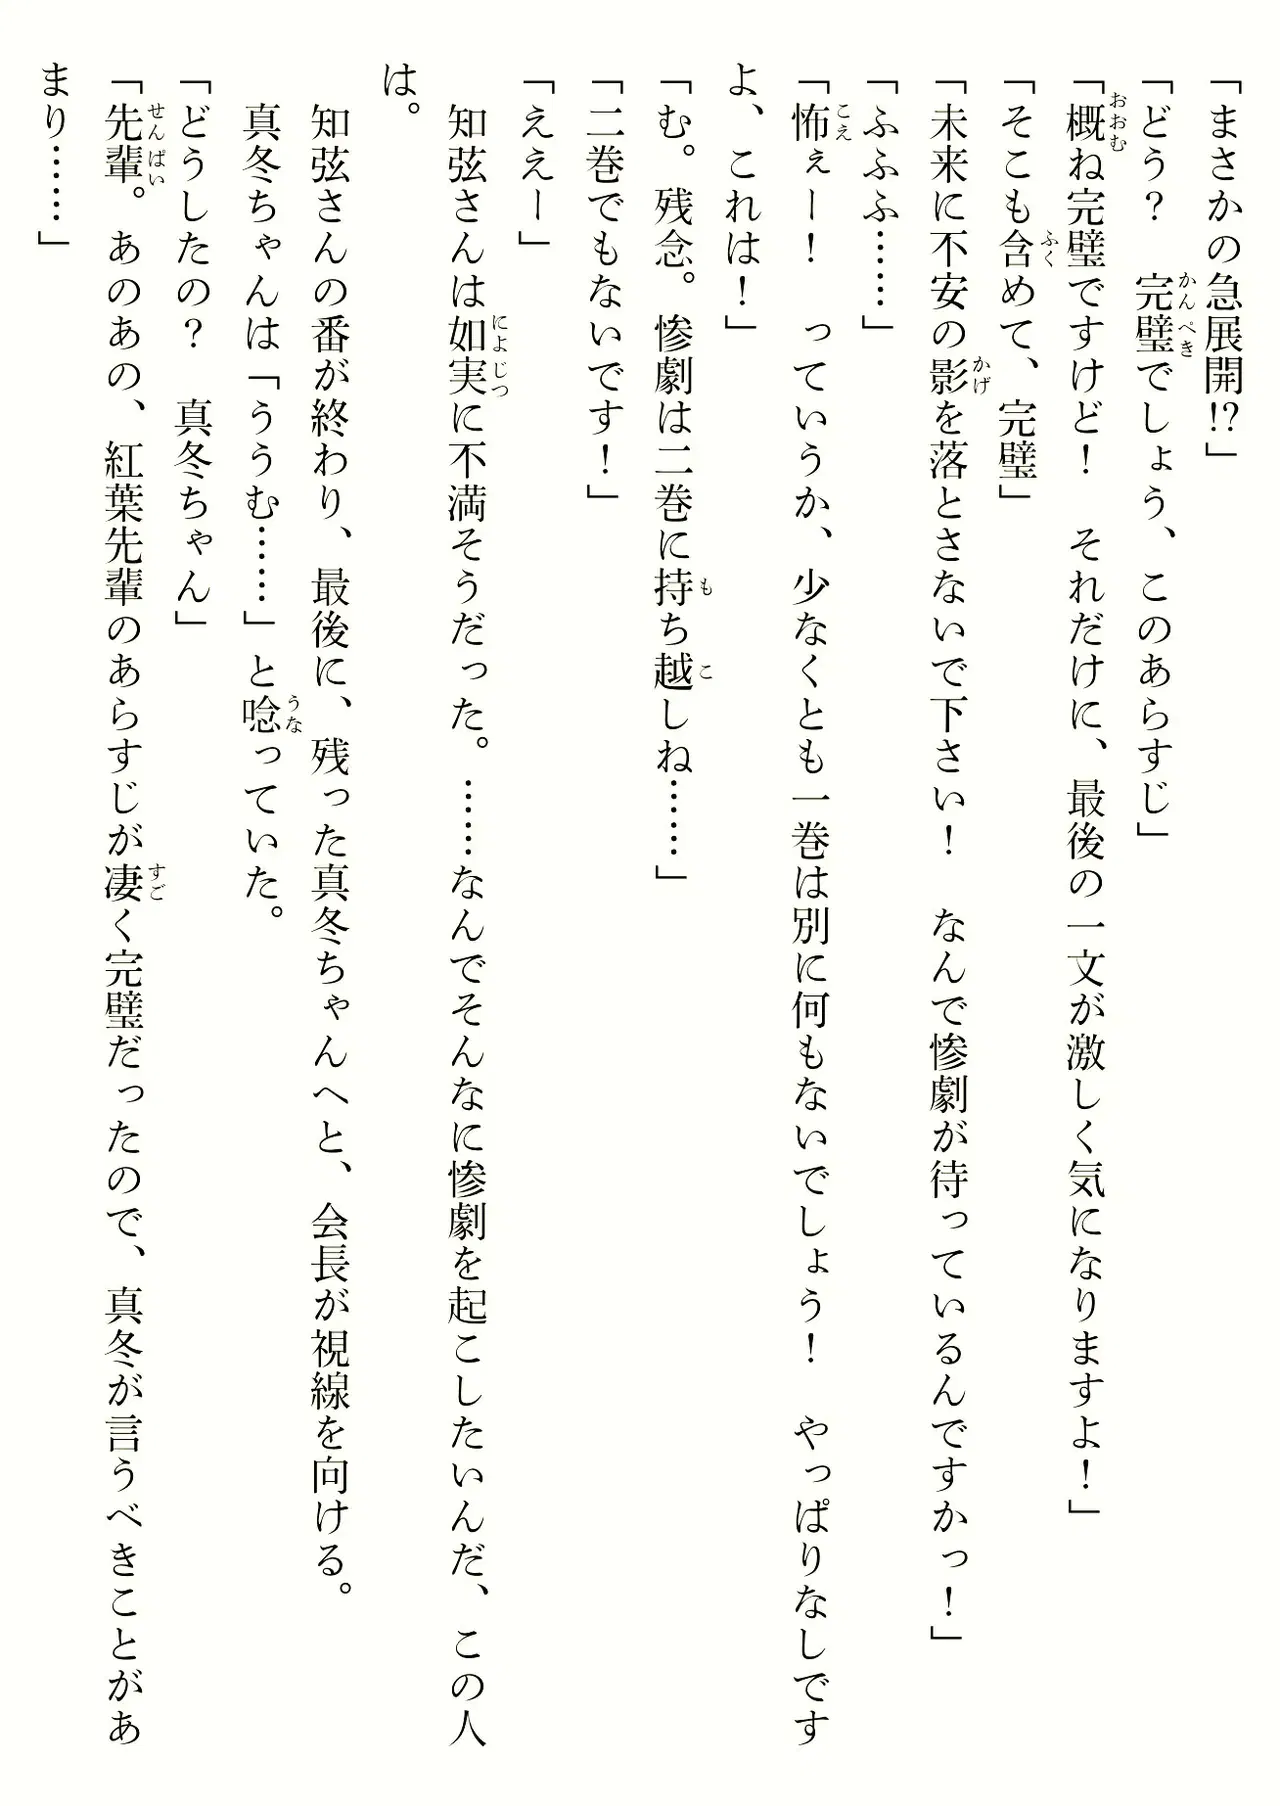 「まさかの急展開!?」
「どう？　完璧でしょう、このあらすじ」
「概ね完璧ですけど！　それだけに、最後の一文が激しく気になりますよ！」
「そこも含めて、完璧」
「未来に不安の影を落とさないで下さい！　なんで惨劇が待っているんですかっ！」
「ふふふ……」
「怖ぇー！　っていうか、少なくとも一巻は別に何もないでしょう！　やっぱりなしです
よ、これは！」
「む。残念。惨劇は二巻に持ち越しね……」
「二巻でもないです！」
「ええー」
　知弦さんは如実に不満そうだった。……なんでそんなに惨劇を起こしたいんだ、この人
は。
　知弦さんの番が終わり、最後に、残った真冬ちゃんへと、会長が視線を向ける。
　真冬ちゃんは「ううむ……」と唸っていた。
「どうしたの？　真冬ちゃん」
「先輩。あのあの、紅葉先輩のあらすじが凄く完璧だったので、真冬が言うべきことがあ
まり……」